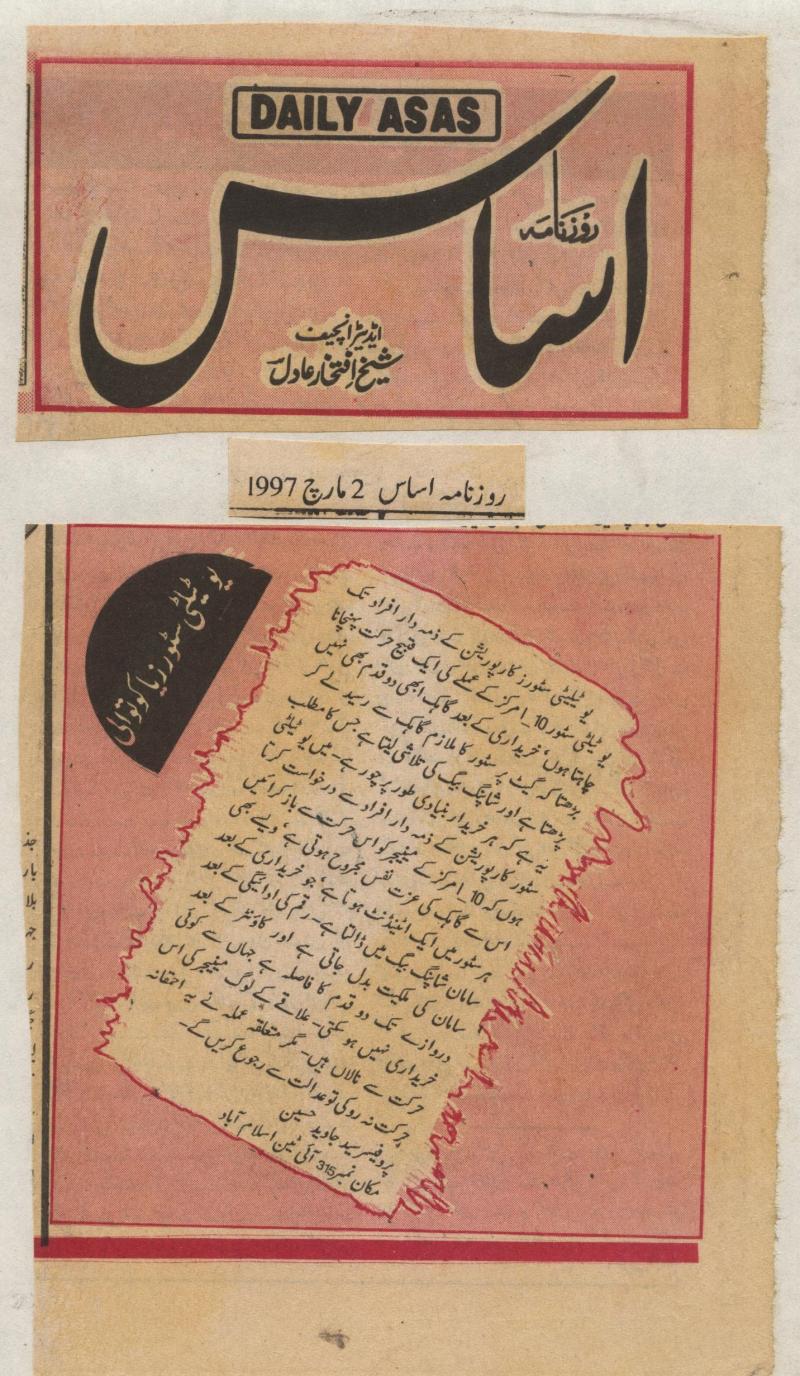 DAILY ASAS
روزنامہ
اساس
ایڈیٹر انچیف
شیخ افتخار عادل
روزنامہ اساس 2 مارچ 1997
یوٹیلٹی سٹورز یا کوتوالی
یوٹیلیٹی سٹورز کارپوریشن کے ذمہ دار افراد تک
یوٹیلٹی سٹور 10_ا مرکز کے عملے کی ایک قبیح حرکت پہنچانا
چاہتا ہوں، خریداری کے بعد گاہک ابھی دو قدم بھی نہیں
بڑھتا کہ گیٹ پر سٹور کا ملازم گاہک سے رسید لے کر
پڑھتا ہے اور شاپنگ بیگ کی تلاشی لیتا ہے جس کا مطلب
یہ ہے کہ ہر خریدار بنیادی طور پر چور ہے۔ میں یوٹیلٹی
سٹور کارپوریشن کے ذمہ دار افراد سے درخواست کرتا
ہوں کہ 10_ا مرکز کے منیجر کو اس حرکت سے باز کرائیں
اس سے گاہک کی عزت نفس مجروح ہوتی ہے، ویسے بھی
ہر سٹور میں ایک اٹینڈنٹ ہوتا ہے، جو خریداری کے بعد
سامان شاپنگ بیگ میں ڈالتا ہے۔ رقم کی ادائیگی کے بعد
سامان کی ملکیت بدل جاتی ہے اور کاؤنٹر کے بعد
دروازے تک دو قدم کا فاصلہ ہے جہاں سے کوئی
خریداری نہیں ہو سکتی۔ علاقے کے لوگ منیجر کی اس
حرکت سے نالاں ہیں۔ مگر متعلقہ عملہ نے یہ احمقانہ
حرکت نہ روکی تو عدالت سے رجوع کریں گے۔
پروفیسر سید جاوید حسین
مکان نمبر 315 آئی ٹین اسلام آباد